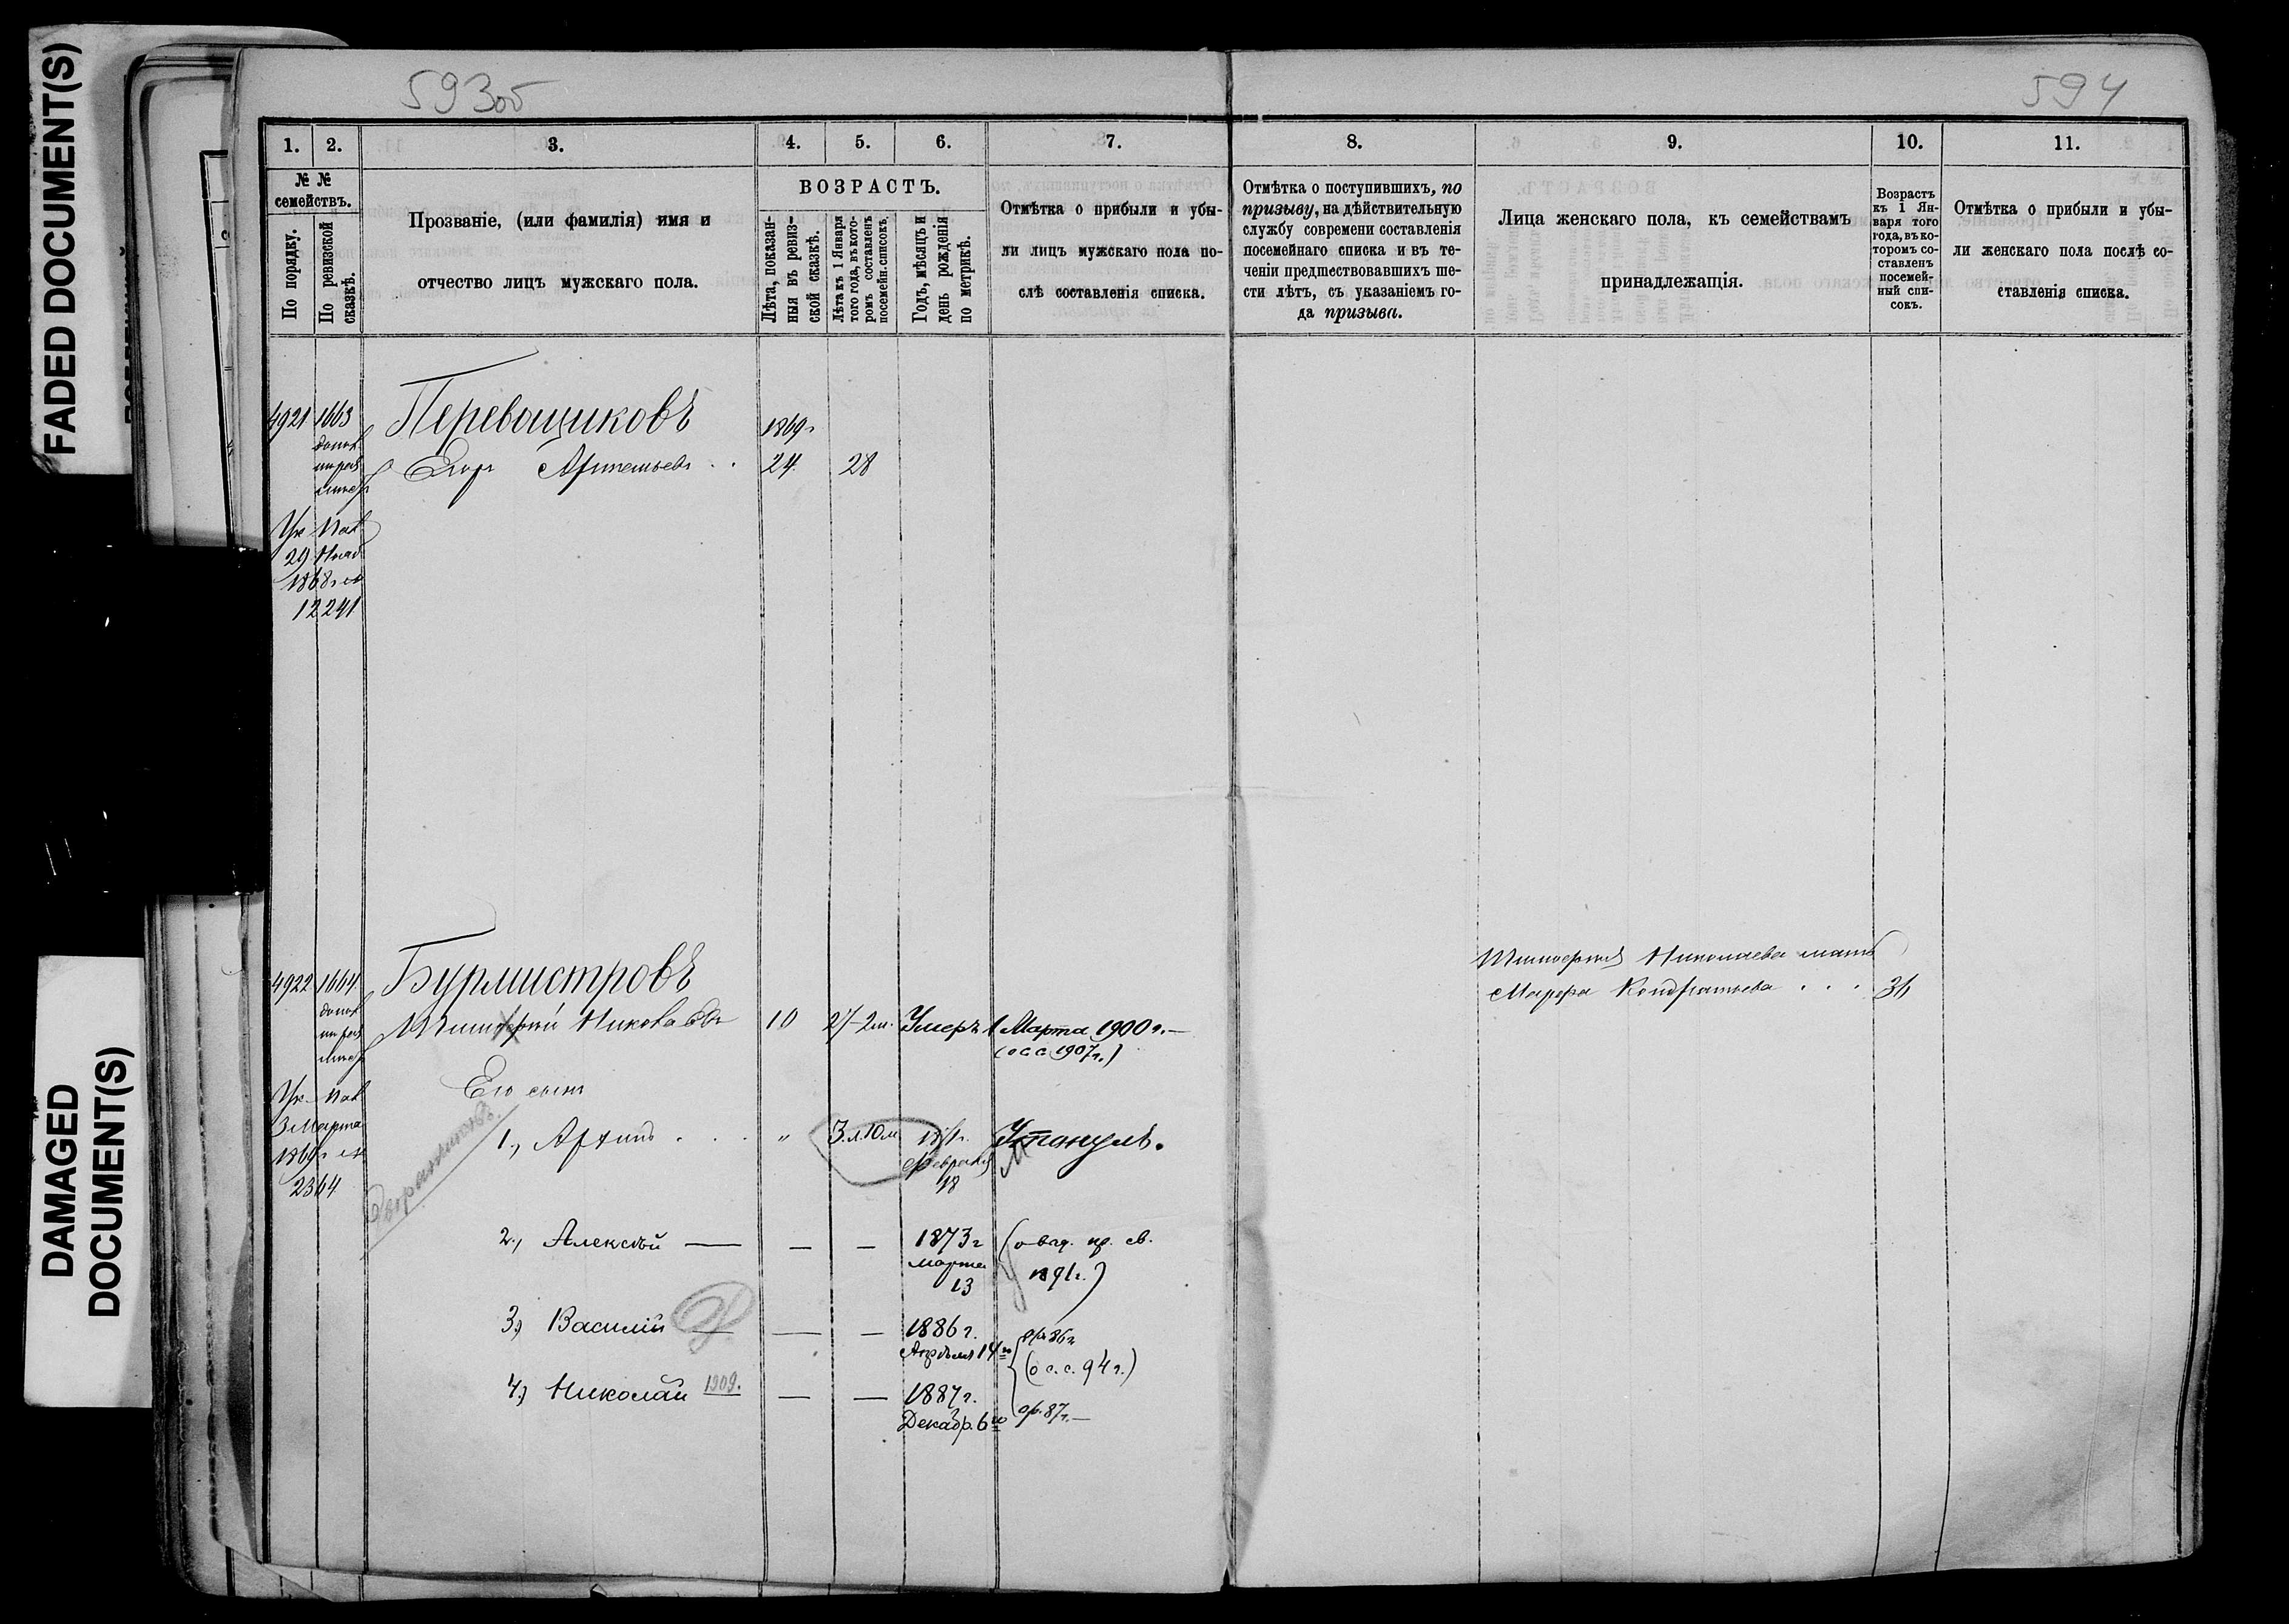 FADED DOCUMENT(S)
DAMAGED
DOCUMENT(S)
593об
594
1.
2.
3.
4.
5.
6.
7.
8.
9.
10.
11.
№ №
семействъ.
По порядку.
По ревизской
сказкѣ.
Прозваніе, (или фамилія) имя и
отчество лицъ мужскаго пола.
ВОЗРАСТЪ.
Лѣта, показан-
ныя въ ревиз-
ской сказкѣ.
Лѣта къ 1 Января
того года, въ кото-
ромъ составленъ
посемейн. списокъ.
Годъ, мѣсяцъ и
день рожденія
по метрикѣ.
Отмѣтка о прибыли и убы-
ли лицъ мужскаго пола по-
слѣ составленія списка.
Отмѣтка о поступившихъ, по
призыву, на дѣйствительную
службу современи составленія
посемейнаго списка и въ те-
ченіи предшествовавшихъ ше-
сти лѣтъ, съ указаніемъ го-
да призыва.
Лица женскаго пола, къ семействамъ
принадлежащія.
Возрастъ
къ 1 Ян-
варя того
года, въ ко-
торомъ со-
ставленъ
посемей-
ный спи-
сокъ.
Отмѣтка о прибыли и убы-
ли женскаго пола послѣ со-
ставленія списка.
4921 1663 Перевощиковъ 1869г
Егоръ Артемьевъ . . 24. 28
Ук. Пал.
29 Нояб.
1868г №
12241
4922 1664 Бурмистровъ
Николаевъ 10 27-2м. Умеръ 1 Марта 1900г.—
(о с с 1907г.)
Николаева мать
Марфа Кондратьева . . . 36
Его сынъ
Ук. Пал
3 Марта
1869г №
2364
1., Архипъ . . . " 3.л.10м 1871г. Утонулъ.
Февраля
18
2., Алексѣй — — — 1873г
марта
13
1891г.)
3.) Василій — — — 1886г.
Апрѣля 14го
(о с. с. 94г.)
4.) Николай 1909. — — 1887г.
Декабр. 6го